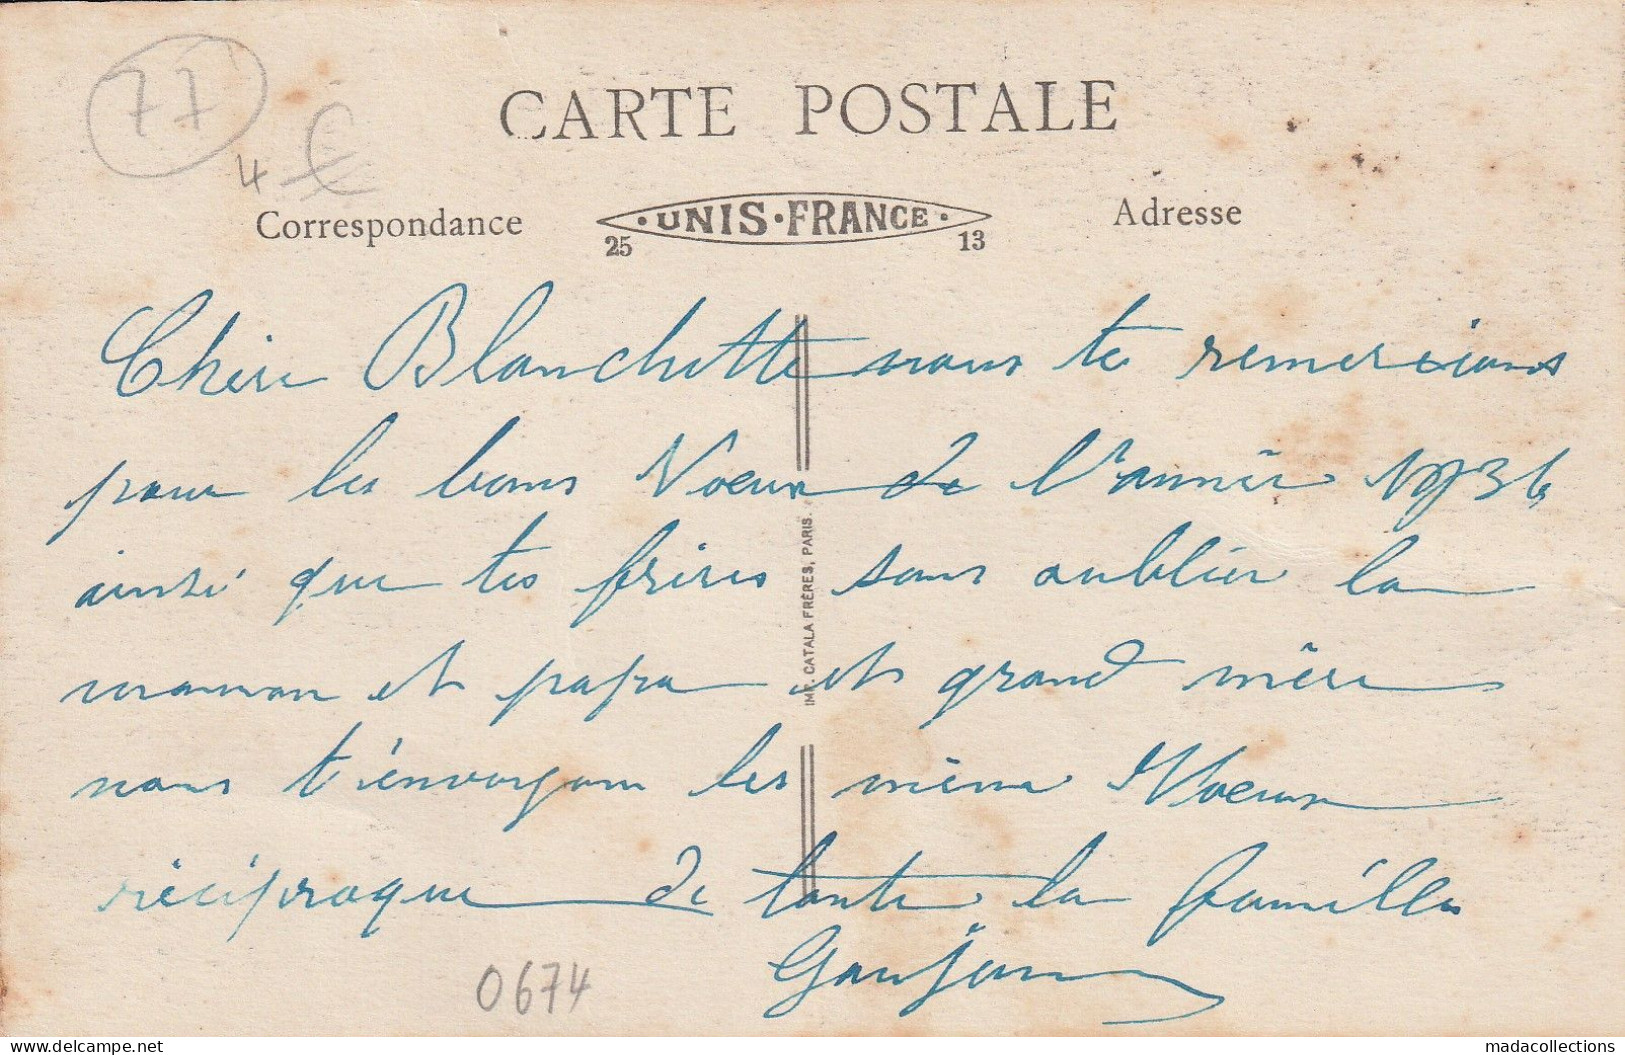 77
4 €
CARTE POSTALE
Correspondance
·UNIS·FRANCE·
25 13
Adresse
Chère Blanchette nous te remercions
pour les bons Voeux de l'année 1936
ainsi que tes frères sans oublier la
maman et papa et grand mère
nous t'envoyons les même Voeux
réciproque de toute la famille
Goujon
IMP. CATALA FRÈRES, PARIS.
0674
www.delcampe.net
madacollections